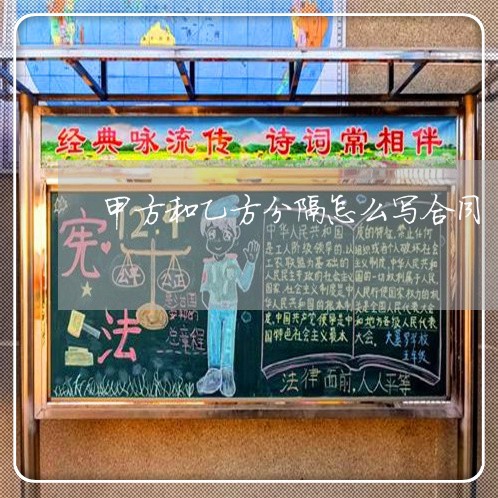 经典咏流传 诗词常相伴
甲方和乙方分隔怎么写合同
宪
法
12.4
公平
公正
治国
总章程
中华人民共和国
是工人阶级领导的,以
工农联盟为基础的
人民民主专政的社会主义
国家。社会主义制度是中
华人民共和国的根本制
度。中国共产党领导是中
国特色社会主义最本
质的特征。禁止任何
组织或者个人破坏社会
主义制度。中华人民共和
国的一切权利属于人民。
人民行使国家权力的机
关是全国人民代表大会
和地方各级人民代表
大会。
五年级
法律面前,人人平等